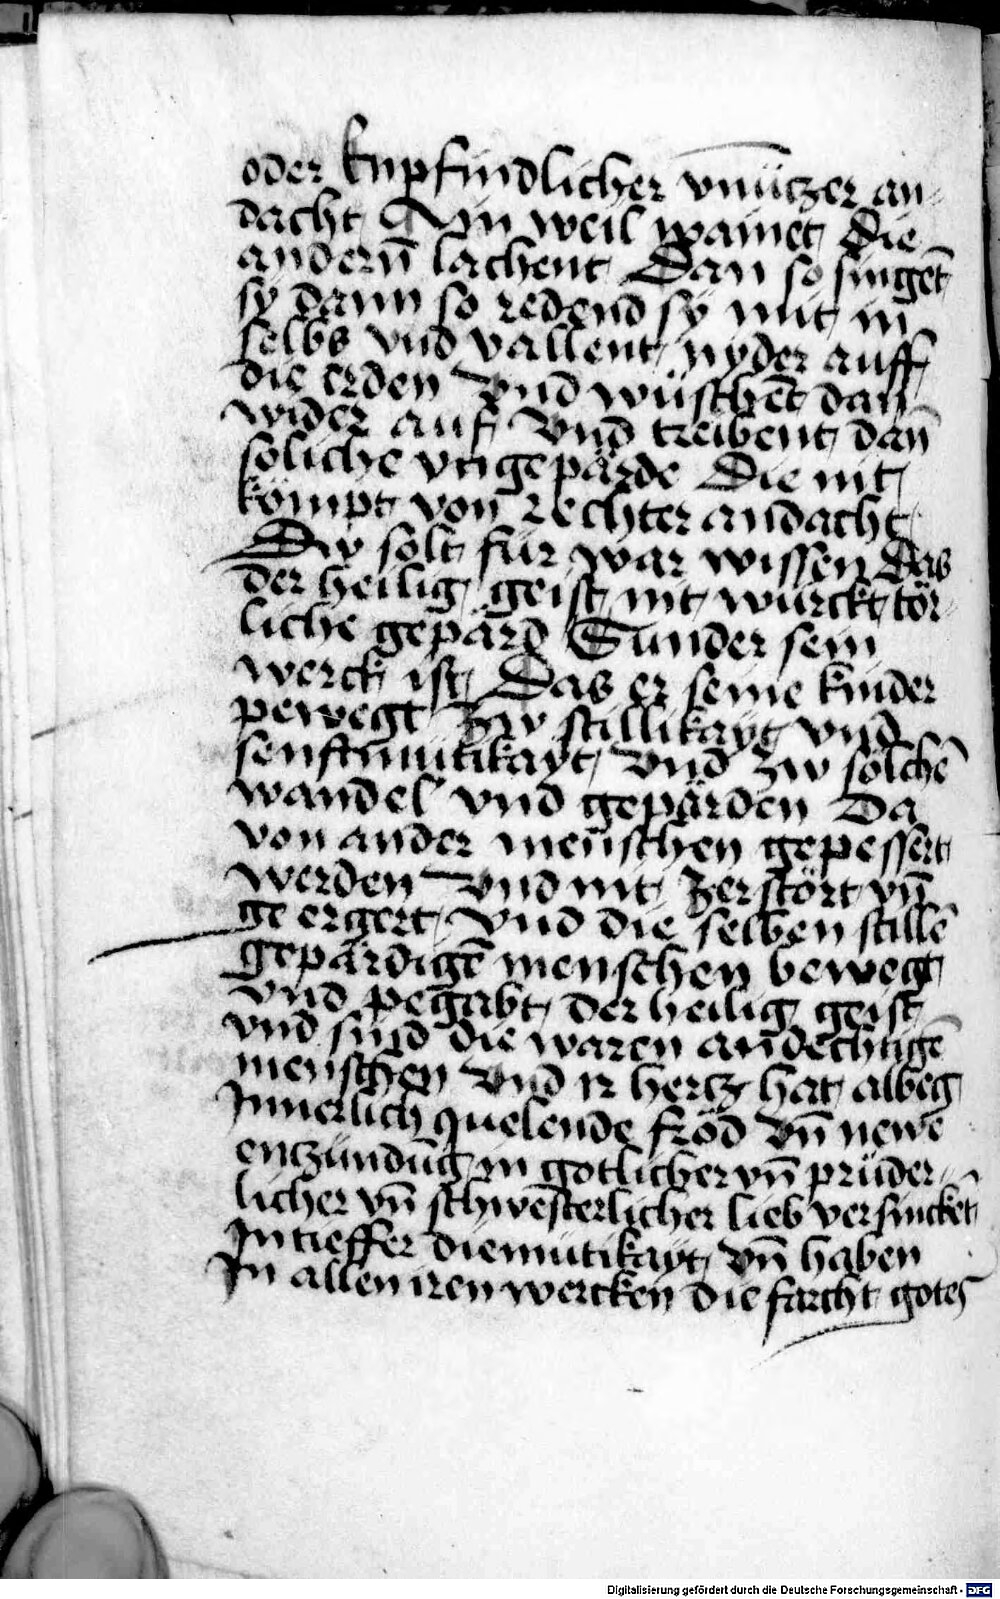 oder knpfindlicher vnnützer an-
dacht Ain weil wainet die
andern̄ lachent Dan so singēt
sy dann so redend sy mit in
selbs vnd vallent nyder auff
die erden vnd wüschēt dan
wider auf vnd treibent dan̄
soliche vngepärde Die nit
kömpt von rechter andacht
Dw solt für war wissen das
der heilig geist nit würckt tör-
liche gepärd Sunder sein
werck ist Das er seine kinder
pewegt zw stillikayt vnd
senftmütikayt vnd zw solchē
wandel vnd gepärden Da
von ander menschen gepessert
werden vnd nit zerstört vn̄
ge ergert vnd die selben stillē
gepärdigē menschen bewegt
vnd pegabt der heilig geist
vnd sind die waren andechtigē
menschen vnd ir hertz hat albeg
Innerlich quelende fröd vn̄ newe
entzündūg in gotlicher vn̄ prüder-
licher vn̄ schwesterlicher lieb versinckēt
In tieffer diemütikayt vn̄ haben
In allen iren wercken die farcht gotes
Digitalisierung gefördert durch die Deutsche Forschungsgemeinschaft - DFG